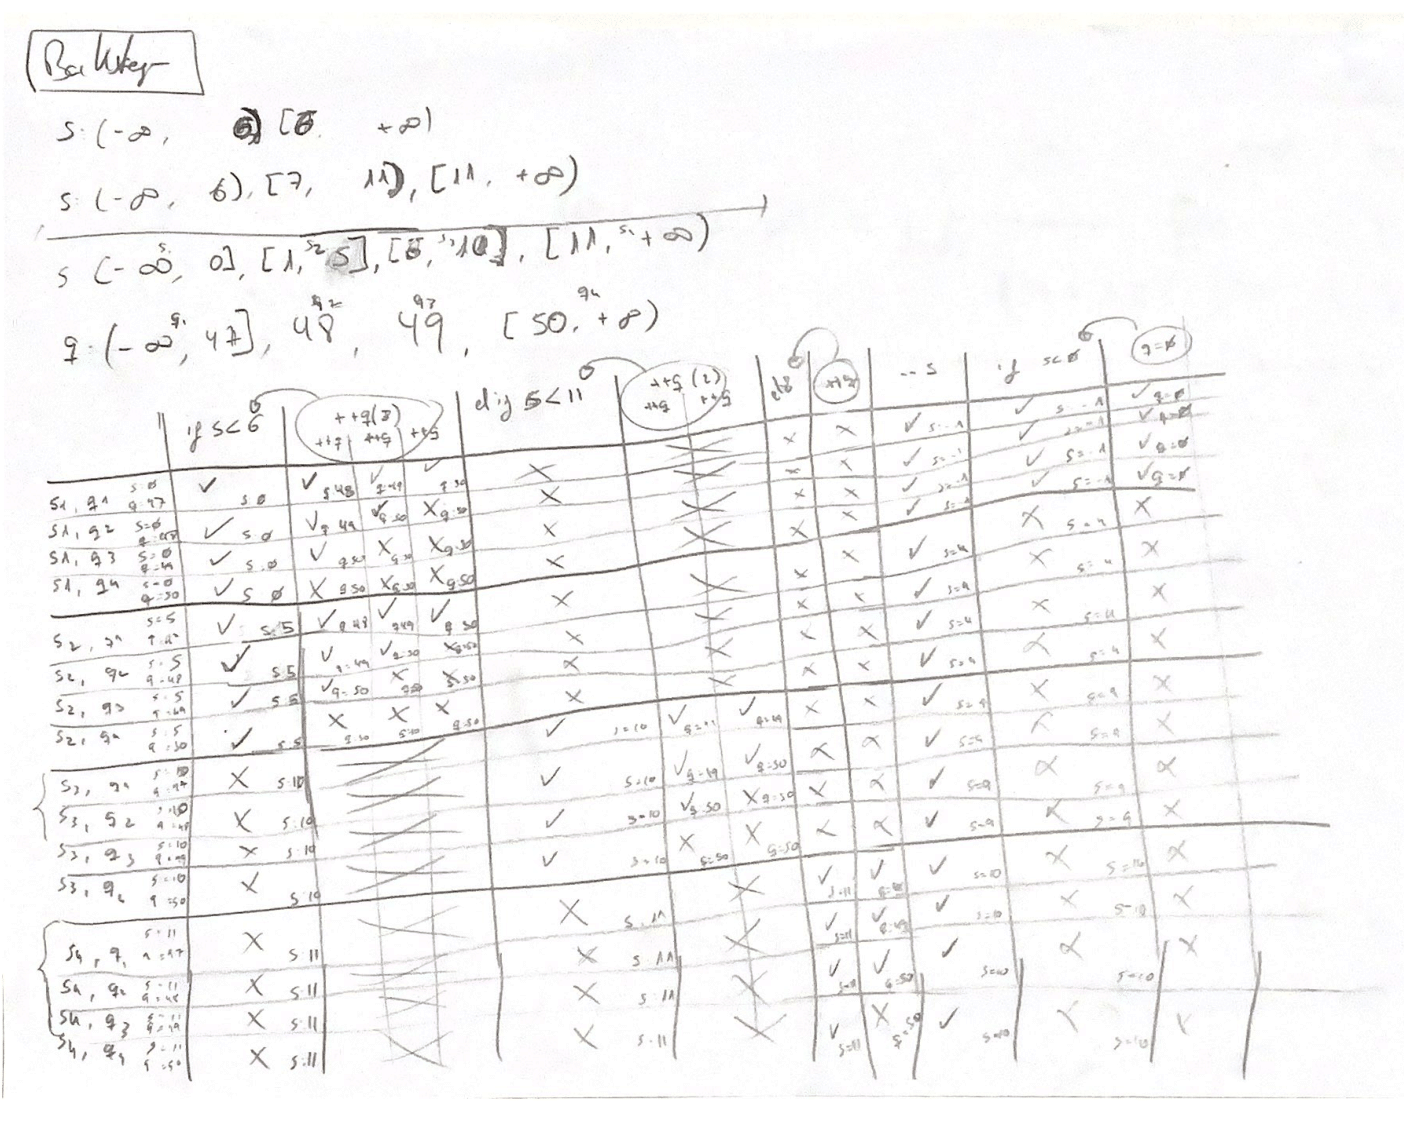 s: (-∞, 6) [6, +∞)
s (-∞, 6), [7, 11), [11, +∞)
s (-∞, 0], [1, 5], [6, 10], [11, +∞)
s1 s2 s3 s4
q1 q2 q3 q4
q: (-∞, 47], 48, 49, [50, +∞)
if s<6 ++q (3) elif s<11 ++q (2) else ++q --s if s<0 q=0
++q ++q ++q ++q ++q
s1, q1 s=0 q=47 ✓ s=0 ✓ q=48 ✓ q=49 ✓ q=50 X X X X ✓ s=-1 ✓ s=-1 ✓ q=0
s1, q2 s=0 q=48 ✓ s=0 ✓ q=49 ✓ q=50 X q=50 X X X X ✓ s=-1 ✓ s=-1 ✓ q=0
s1, q3 s=0 q=49 ✓ s=0 ✓ q=50 X q=50 X q=50 X X X X ✓ s=-1 ✓ s=-1 ✓ q=0
s1, q4 s=0 q=50 ✓ s=0 X q=50 X q=50 X q=50 X X X X ✓ s=-1 ✓ s=-1 ✓ q=0
s2, q1 s=5 q=47 ✓ s=5 ✓ q=48 ✓ q=49 ✓ q=50 X X X X ✓ s=4 X s=4 X
s2, q2 s=5 q=48 ✓ s=5 ✓ q=49 ✓ q=50 X q=50 X X X X ✓ s=4 X s=4 X
s2, q3 s=5 q=49 ✓ s=5 ✓ q=50 X q=50 X q=50 X X X X ✓ s=4 X s=4 X
s2, q4 s=5 q=50 ✓ s=5 X q=50 X q=50 X q=50 X X X X ✓ s=4 X s=4 X
s3, q1 s=10 q=47 X s=10 ✓ s=10 ✓ q=48 ✓ q=49 X X ✓ s=9 X s=9 X
s3, q2 s=10 q=48 X s=10 ✓ s=10 ✓ q=49 ✓ q=50 X X ✓ s=9 X s=9 X
s3, q3 s=10 q=49 X s=10 ✓ s=10 ✓ q=50 X q=50 X X ✓ s=9 X s=9 X
s3, q4 s=10 q=50 X s=10 ✓ s=10 X q=50 X q=50 X X ✓ s=9 X s=9 X
s4, q1 s=11 q=47 X s=11 X s=11 X ✓ s=11 ✓ q=48 ✓ s=10 X s=10 X
s4, q2 s=11 q=48 X s=11 X s=11 X ✓ s=11 ✓ q=49 ✓ s=10 X s=10 X
s4, q3 s=11 q=49 X s=11 X s=11 X ✓ s=11 ✓ q=50 ✓ s=10 X s=10 X
s4, q4 s=11 q=50 X s=11 X s=11 X ✓ s=11 X q=50 ✓ s=10 X s=10 X